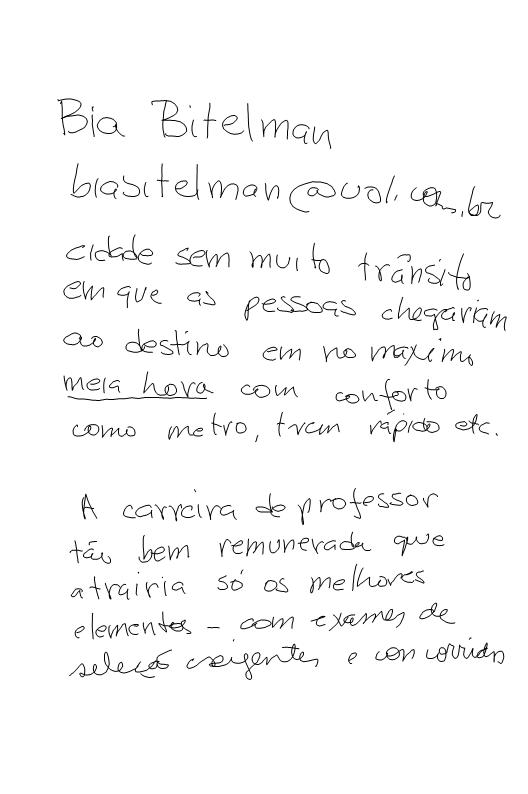 Bia Bitelman
biabitelman@uol.com.br
cidade sem muito trânsito
em que as pessoas chegariam
ao destino em no maximo
meia hora com conforto
como metro, trem rápido etc.
A carreira de professor
tão bem remunerada que
atrairia só os melhores
elementos - com exames de
seleção exigentes e concorridos